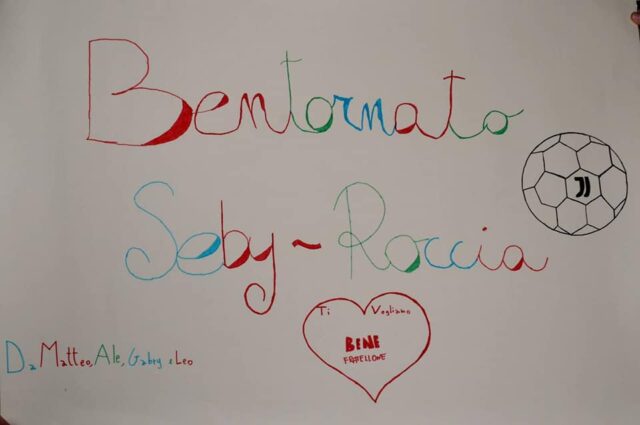 Bentornato
Seby~Roccia
Ti Vogliamo
BENE
FRATELLONE
Da Matteo, Ale, Gabry e Leo